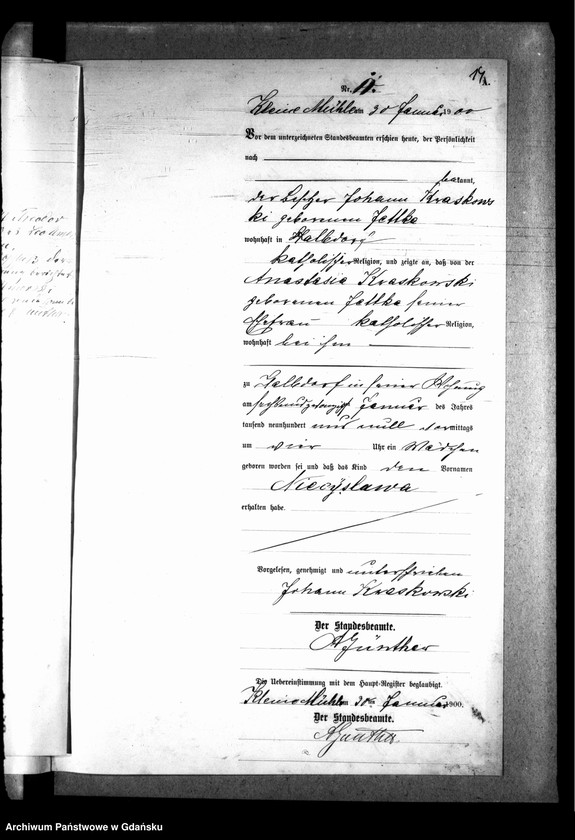 Nr. 11.
Kleine Mühle am 30 Januar 1900
Vor dem unterzeichneten Standesbeamten erschien heute, der Persönlichkeit
nach
bekannt,
der Johann Kraskows
ki geborenen Jettka
wohnhaft in Halbdorf
katholischer Religion, und zeigte an, daß von der
Anastasia Kraskowski
geborenen Jettka seiner
Ehefrau katholischer Religion,
wohnhaft bei ihm
zu Halbdorf in seiner Wohnung
am sechsundzwanzigsten Januar des Jahres
tausend neunhundert und null vormittags
um vier Uhr ein Mädchen
geboren worden sei und daß das Kind den Vornamen
Niecÿslawa
erhalten habe.
Vorgelesen, genehmigt und unterschrieben
Johann Kraskowski
Der Standesbeamte.
A Günther
Die Uebereinstimmung mit dem Haupt-Register beglaubigt.
Kleine Mühle am 30ten Januar 1900.
Der Standesbeamte.
A Günther.
Archiwum Państwowe w Gdańsku